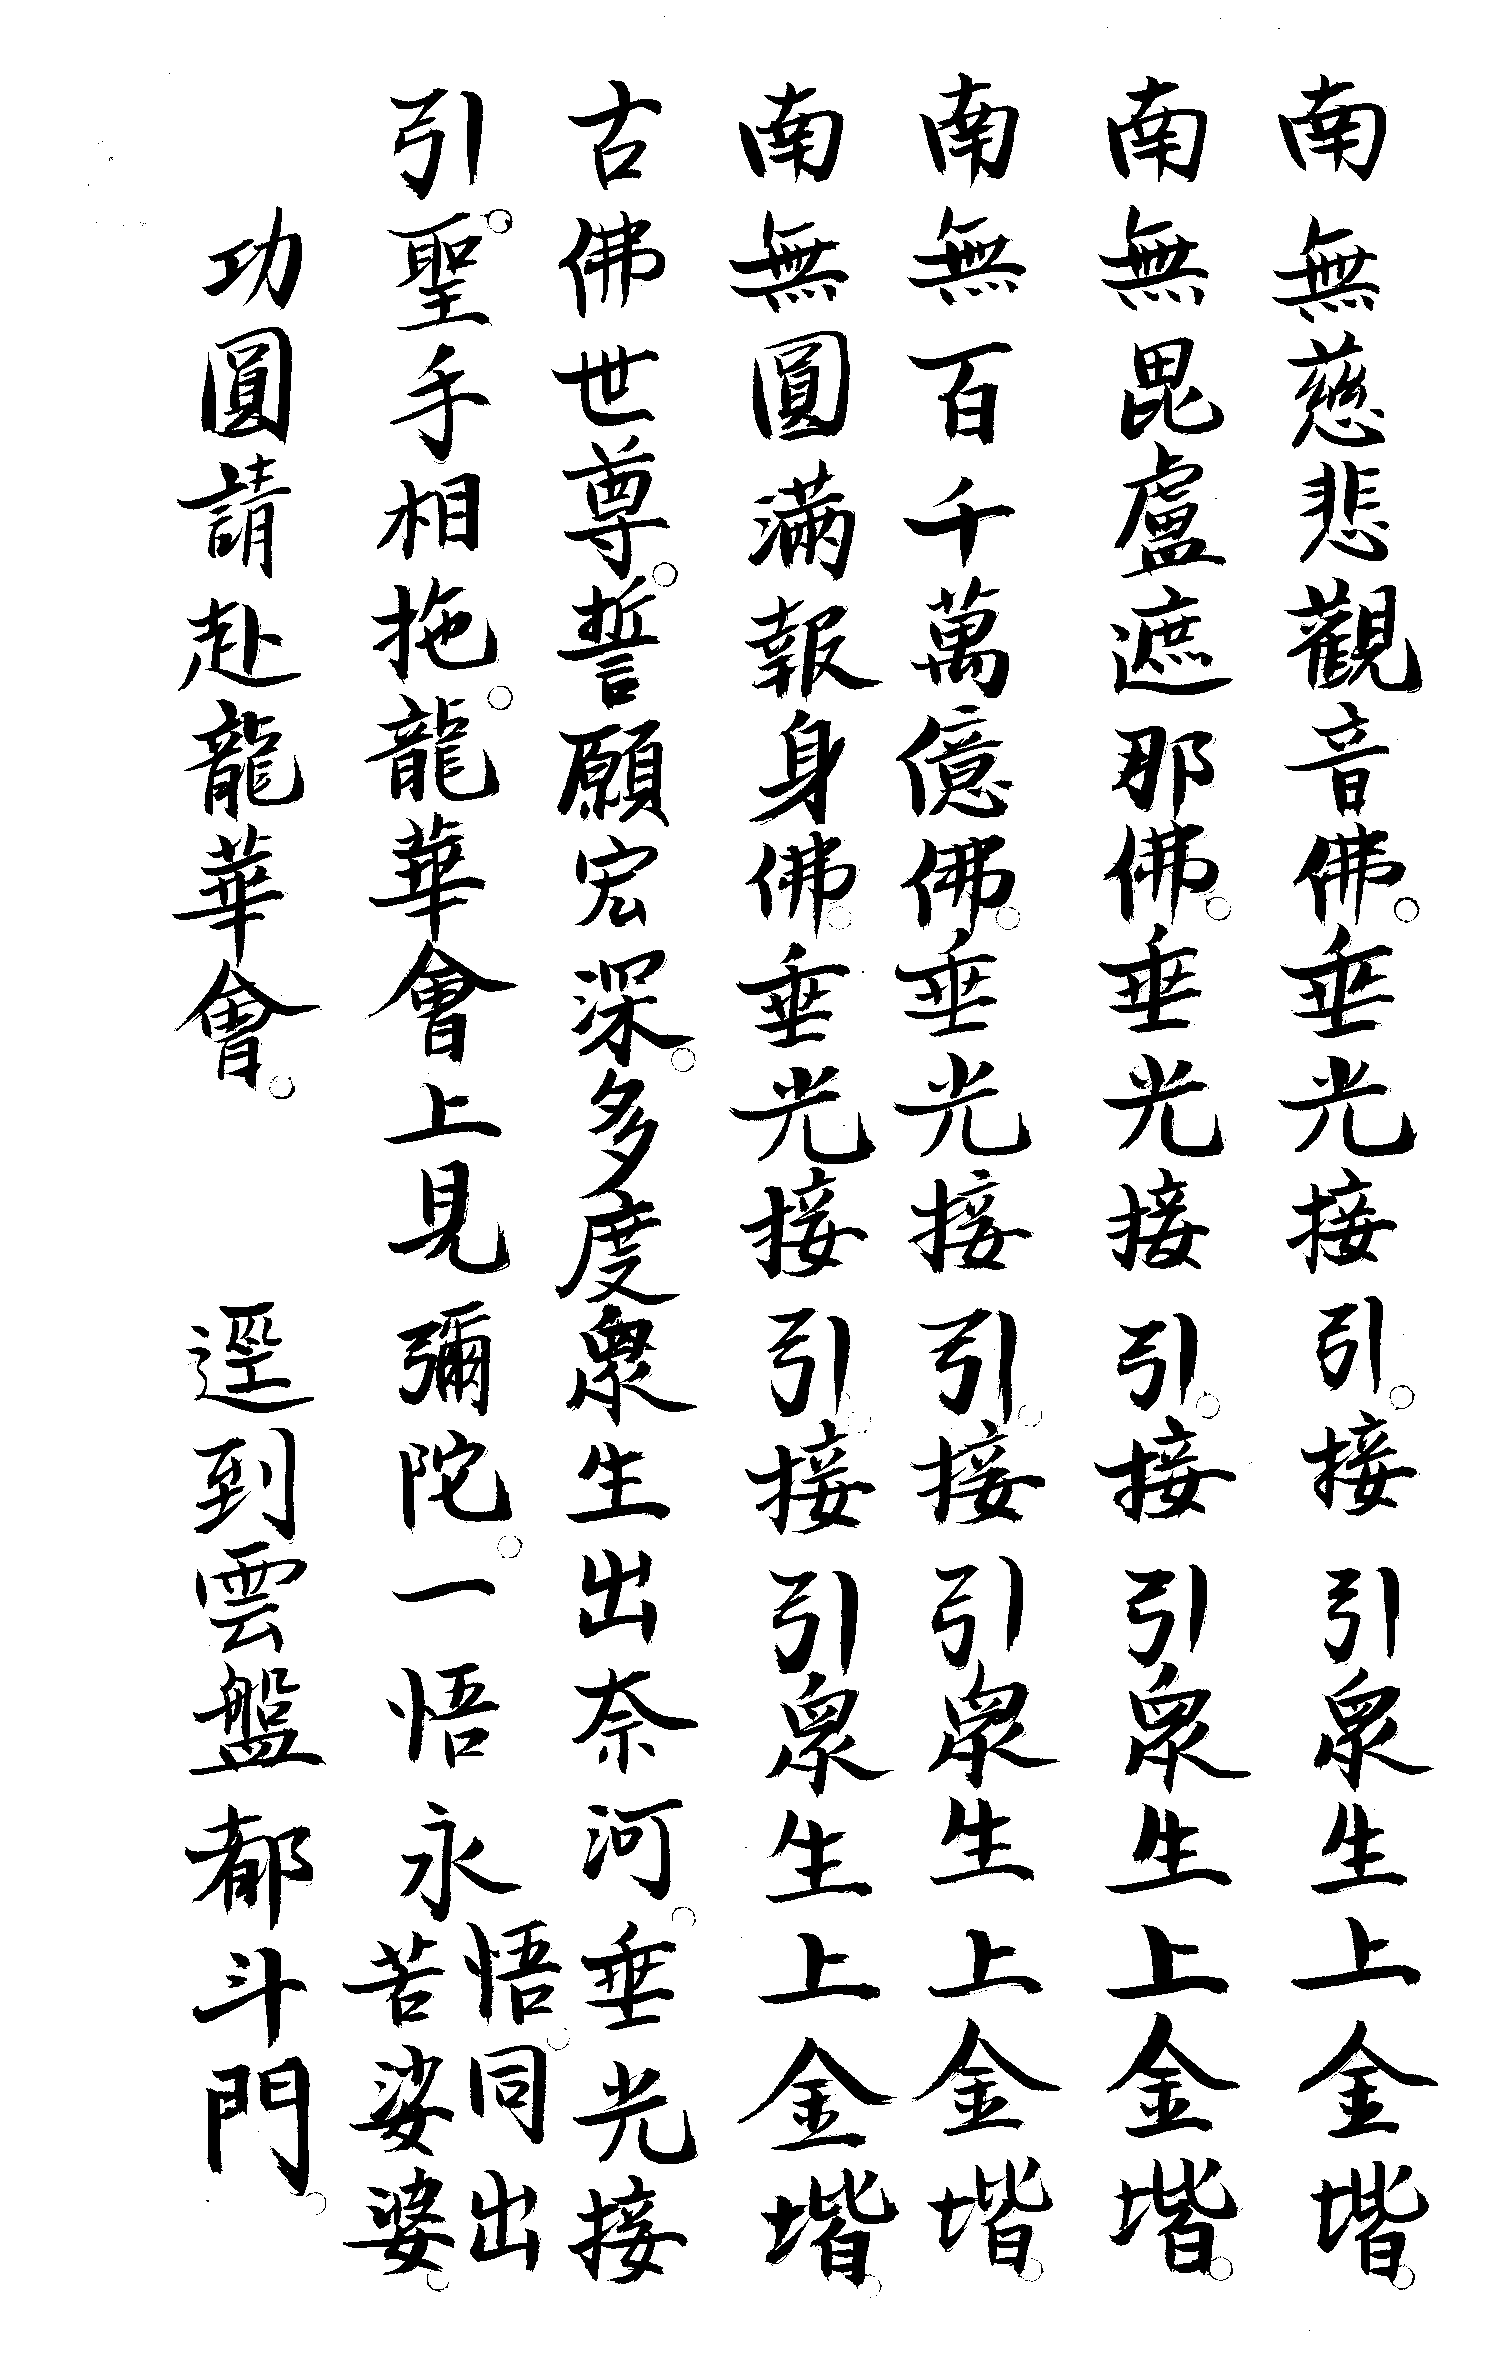 南無慈悲觀音佛。垂光接引。接引衆生上金堦。
南無毘盧遮那佛。垂光接引。接引衆生上金堦。
南無百千萬億佛。垂光接引。接引衆生上金堦。
南無圓滿報身佛。垂光接引。接引衆生上金堦。
古佛世尊。誓願宏深。多度衆生出奈河。垂光接
引。聖手相拖。龍華會上見彌陀。一悟永悟。同出苦娑婆。
功圓請赴龍華會。 逕到雲盤都斗門。